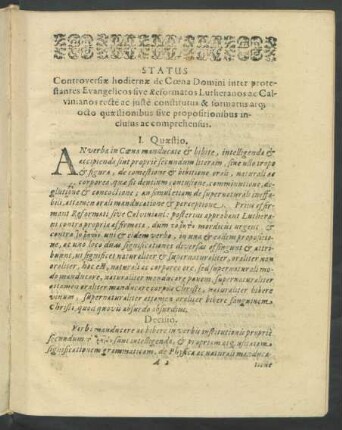 STATUS
Controversiæ hodiernæ de Cœna Domini inter prote-
stantes Evangelicos sive Reformatos Lutheranos ac Cal-
vinianos rectè ac justè constitutus & formatus atq;
octo quæstionibus sive propositionibus in-
clusus ac comprehensus.
I. Quæstio.
AN verba in Cœna manducate & bibite, intelligenda &
accipienda sint propriè secundum literam, sine ullo tropo
& figura, de comestione & bibitione oris, naturali ac
corporea, quæ fit dentium contusione, comminutione, de-
glutitione & concoctione; an simul etiam de supernaturali ineffa-
bili, attamen orali manducatione & perceptione. Prius affir-
mant Reformati sive Calviniani: posterius approbant Lutherani
contra propria asserta, dum mordicus urgent, &
contra uni & eidem verbo, in una & eadem propositio-
ne, ac uno loco duas significationes diversas affingunt & attri-
buunt, ut significet naturaliter & supernaturaliter, oraliter non
oraliter, hac est, naturali ac corporeo ore, sed supernaturali mo-
do manducare, naturaliter manducare panem, supernaturaliter
attamen oraliter manducare corpus Christi, naturaliter bibere
vinum, supernaturaliter attamen oraliter bibere sanguinem
Christi, quo quid absurdo absurdius.
Decisio.
Verbi manducare ac bibere in verbis institutionis propriè
secundum sunt intelligenda, & propriam atq; usitatam
significationem grammaticam, de Physica ac naturali manduca-
A 2 tione